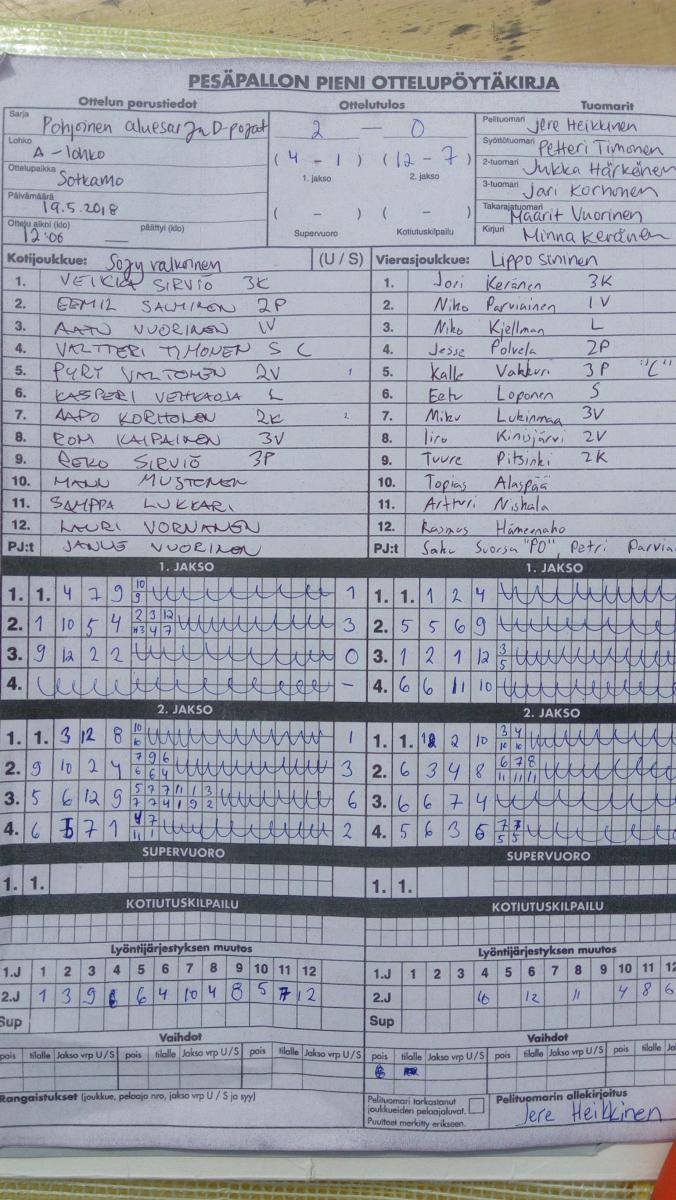 PESÄPALLON PIENI OTTELUPÖYTÄKIRJA
Ottelun perustiedot Ottelutulos Tuomarit
Sarja Pohjoinen aluesarja D-pojat
Lohko A-lohko
Ottelupaikka Sotkamo
Päivämäärä 19.5.2018
Ottelu alkoi (klo) päättyi (klo)
12:06
2 – 0
(4 – 1) (12 – 7)
1. jakso 2. jakso
( – ) ( – )
Supervuoro Kotiutuskilpailu
Pelituomari Jere Heikkinen
Syöttötuomari Petteri Timonen
2-tuomari Jukka Härkönen
3-tuomari Jari Korhonen
Takarajatuomari Maarit Vuorinen
Kirjuri Minna Keränen
Kotijoukkue: Sojy valkoinen (U / S)
1. VEIKKA SIRVIÖ 3K
2. EEMIL SALMINEN 2P
3. AATU VUORINEN 1V
4. VALTTERI TIMONEN S C
5. PYRY VALTONEN 2V 1
6. KASPERI VEHKAOJA L
7. AAPO KORHONEN 2K 2
8. RONI KAIPAINEN 3V
9. REKO SIRVIÖ 3P
10. MUSTONEN
11. SAMPPA LUKKARI
12. LAURI VORNANEN
PJ:t JANNE VUORINEN
Vierasjoukkue: Lippo sininen
1. Jori Keränen 3K
2. Niko Parviainen 1V
3. Niko Kjellman L
4. Jesse Polvela 2P
5. Kalle Vakkuri 3P "C"
6. Eetu Loponen S
7. Miku Lukinmaa 3V
8. Iiro Kinisjärvi 2V
9. Tuure Pitsinki 2K
10. Topias Alaspää
11. Artturi Niskala
12. Rasmus Hämeenaho
PJ:t Saku Suorsa "PO", Petri
1. JAKSO
1. 1. 4 7 9 10 9 1
2. 1 10 5 4 2 3 12 4 7 3
3. 9 12 2 2 0
4. –
1. JAKSO
1. 1. 1 2 4
2. 5 5 6 9
3. 1 2 1 12 3 5
4. 6 6 11 10
2. JAKSO
1. 1. 3 12 8 10 1
2. 9 10 2 4 7 9 6 6 6 4 3
3. 5 6 12 9 5 7 7 11 1 3 7 7 4 1 9 2 6
4. 6 5 7 1 4 7 11 1 2
2. JAKSO
1. 1. 2 10 3 4 10 10
2. 6 3 4 8 6 7 8 11 11 11
3. 6 6 7 4
4. 5 6 3 6 7 5 5
SUPERVUORO
1. 1.
SUPERVUORO
1. 1.
KOTIUTUSKILPAILU
KOTIUTUSKILPAILU
Lyöntijärjestyksen muutos
1.J 1 2 3 4 5 6 7 8 9 10 11 12
2.J 1 3 9 6 4 10 4 8 5 7 12
Sup
Lyöntijärjestyksen muutos
1.J 1 2 3 4 5 6 7 8 9 10 11 12
2.J 12 11 4 8 6
Sup
Vaihdot
pois tilalle Jakso vrp U / S pois tilalle Jakso vrp U / S pois tilalle Jakso vrp U / S
Vaihdot
pois tilalle Jakso vrp U / S pois tilalle Jakso vrp U / S pois tilalle
Rangaistukset (joukkue, pelaaja nro, jakso vrp U / S ja syy)
Pelituomari tarkastanut
joukkueiden pelaajaluvat.
Puutteet merkitty erikseen.
Pelituomarin allekirjoitus
Jere Heikkinen